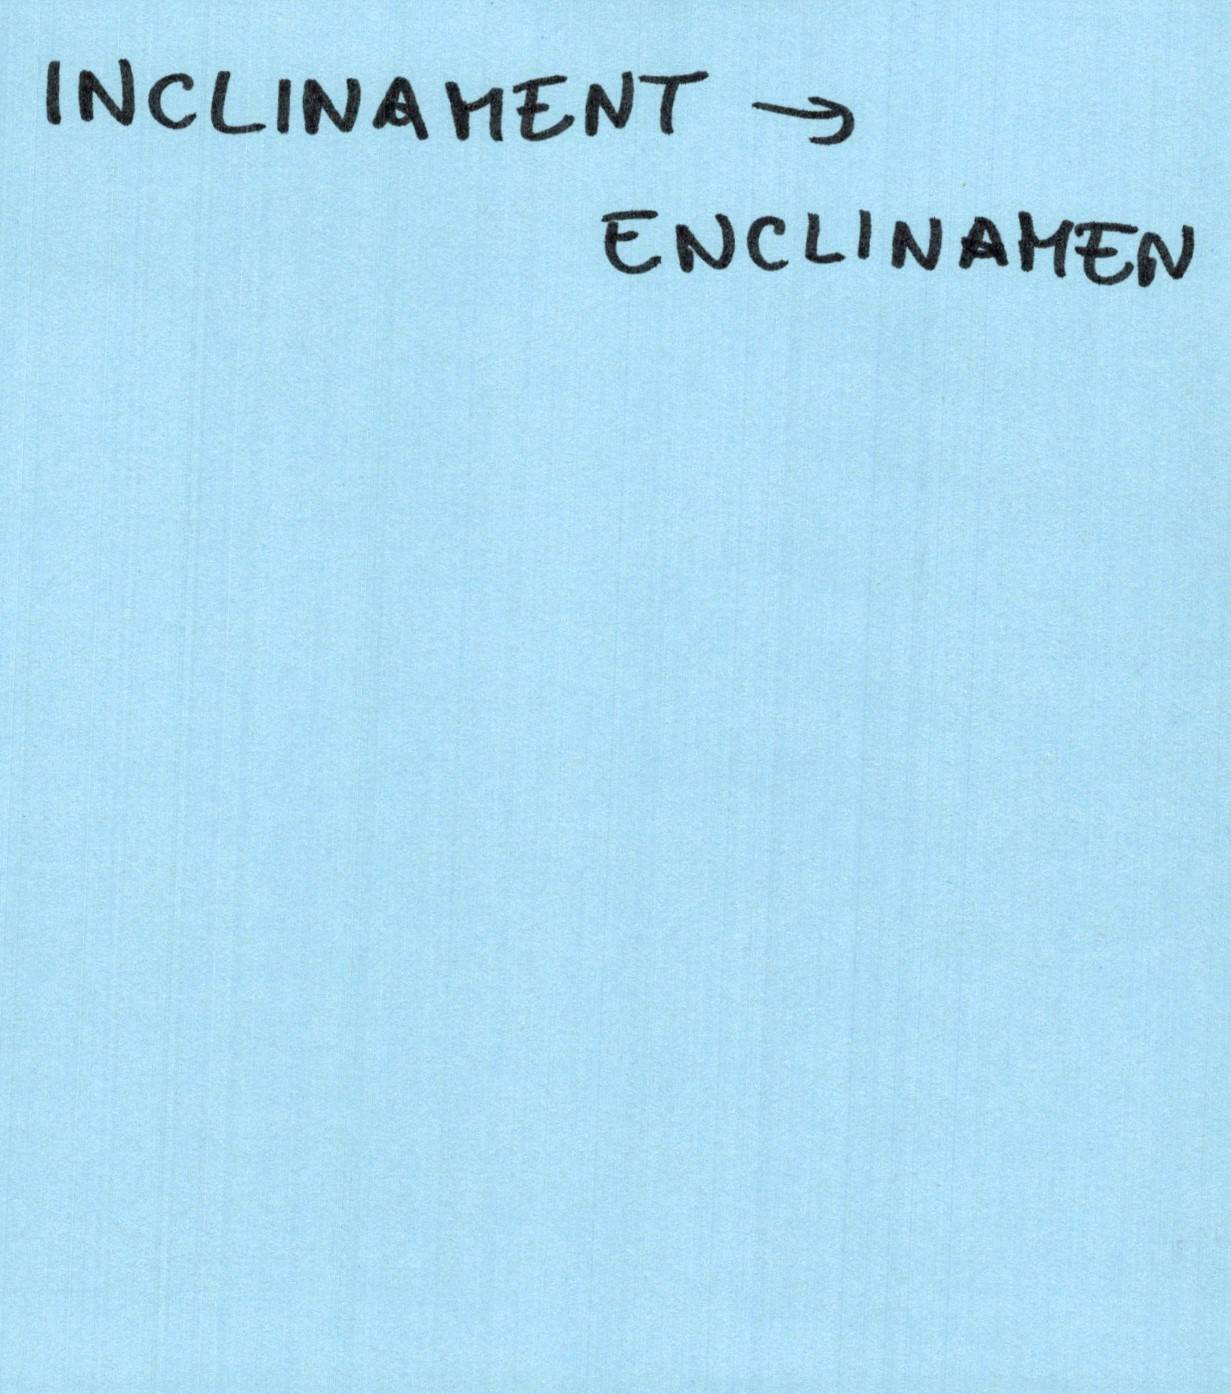 INCLINAMENT →
ENCLINAMEN